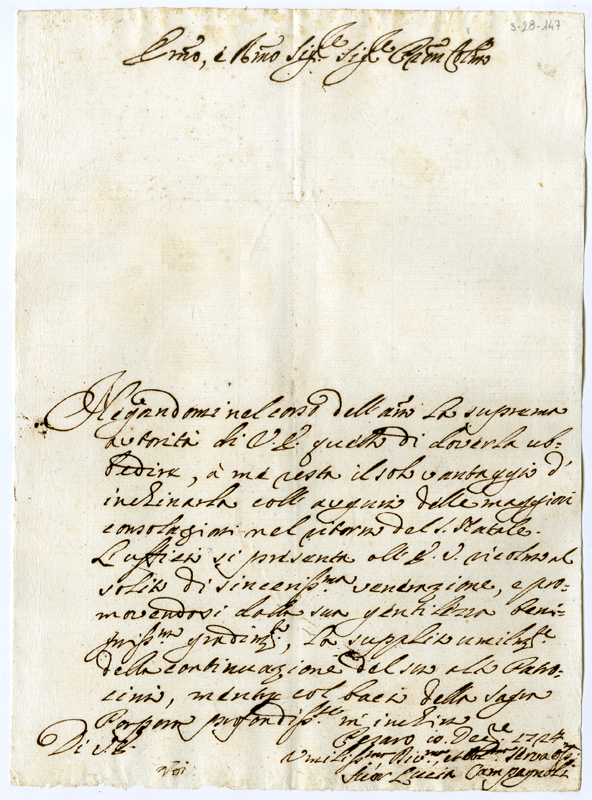 3-28-147
Emo, e Rmo Sig.re Sig.re Pron Colmo
Negandomi nel corso dell'año la suprema
autorità di V. E. quella di doverla ub-
bedire, à me resta il solo vantaggio d'
inchinarla coll'augurio delle maggiori
consolazioni nel ritorno del S. Natale.
L'uffizio si presenta all'E. V. ricolmo al
solito di sinceriss.ma venerazione, e pro-
movendosi dalla sua gentilezza beni-
gniss.mo gradim.to, la supplico umilm.te
della continuazione del suo alto Patro-
cinio, mentre col bacio della Sagra
Porpora profondiss.te m'inchino
Di V. E.
Pesaro 10 Dec.re 1724
Umiliss.ma Div.ma et Obl.ma Serva
Suor Lucia Campagnoli